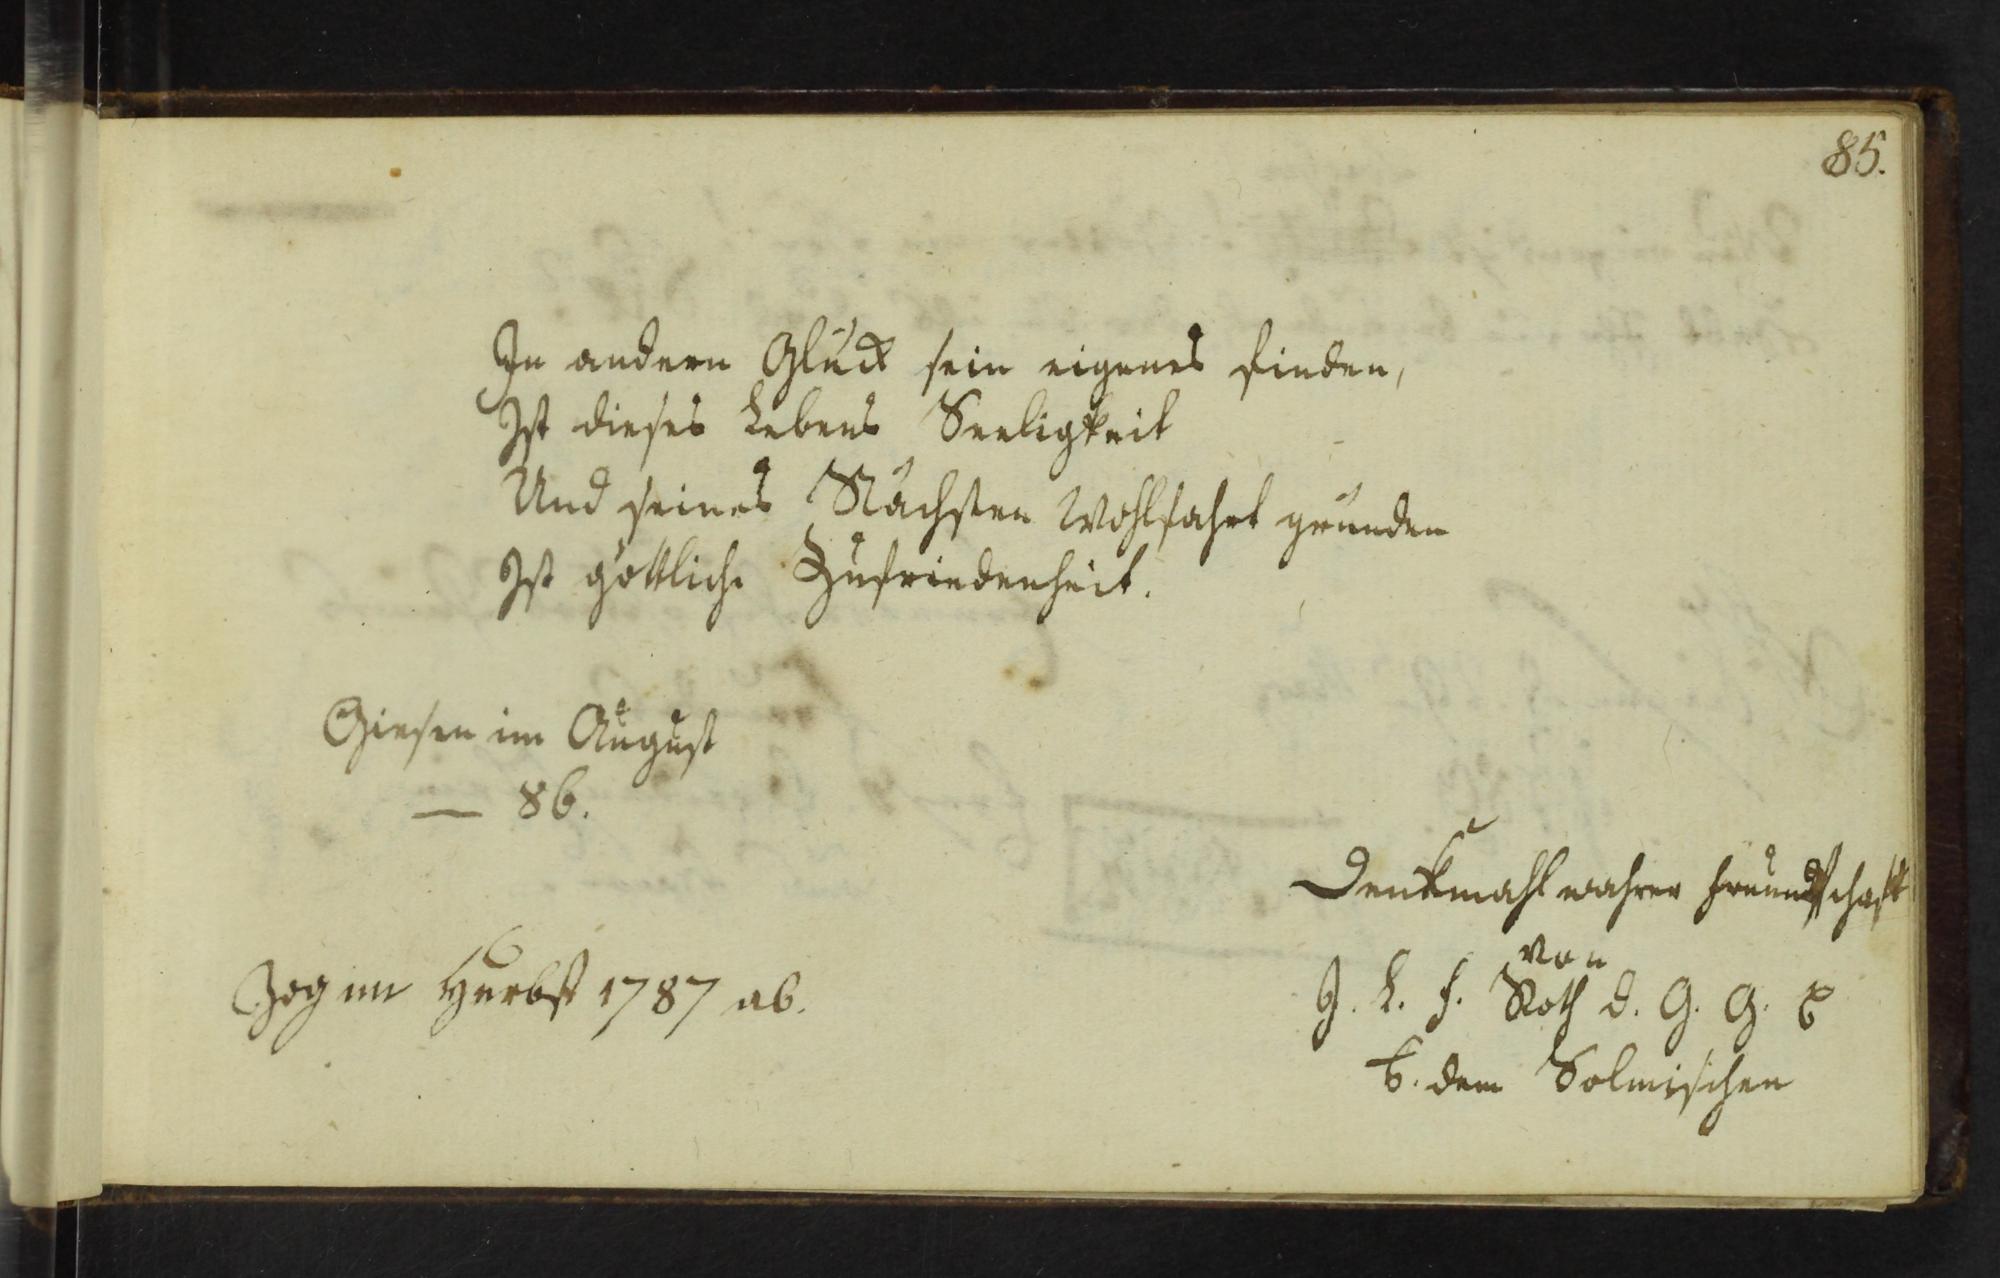 85.
In andern Glück sein eigenes finden,
Ist dieses Lebens Seeligkeit
Und seines Nächsten Wohlfahrt gründen
Ist göttliche Zufriedenheit.
Giesen im August
— 86.
Denkmahl wahrer Freundschaft
von
J. L. F. Roth d. G. G. B
Zog im Herbst 1787 ab.
a. dem Solmischen